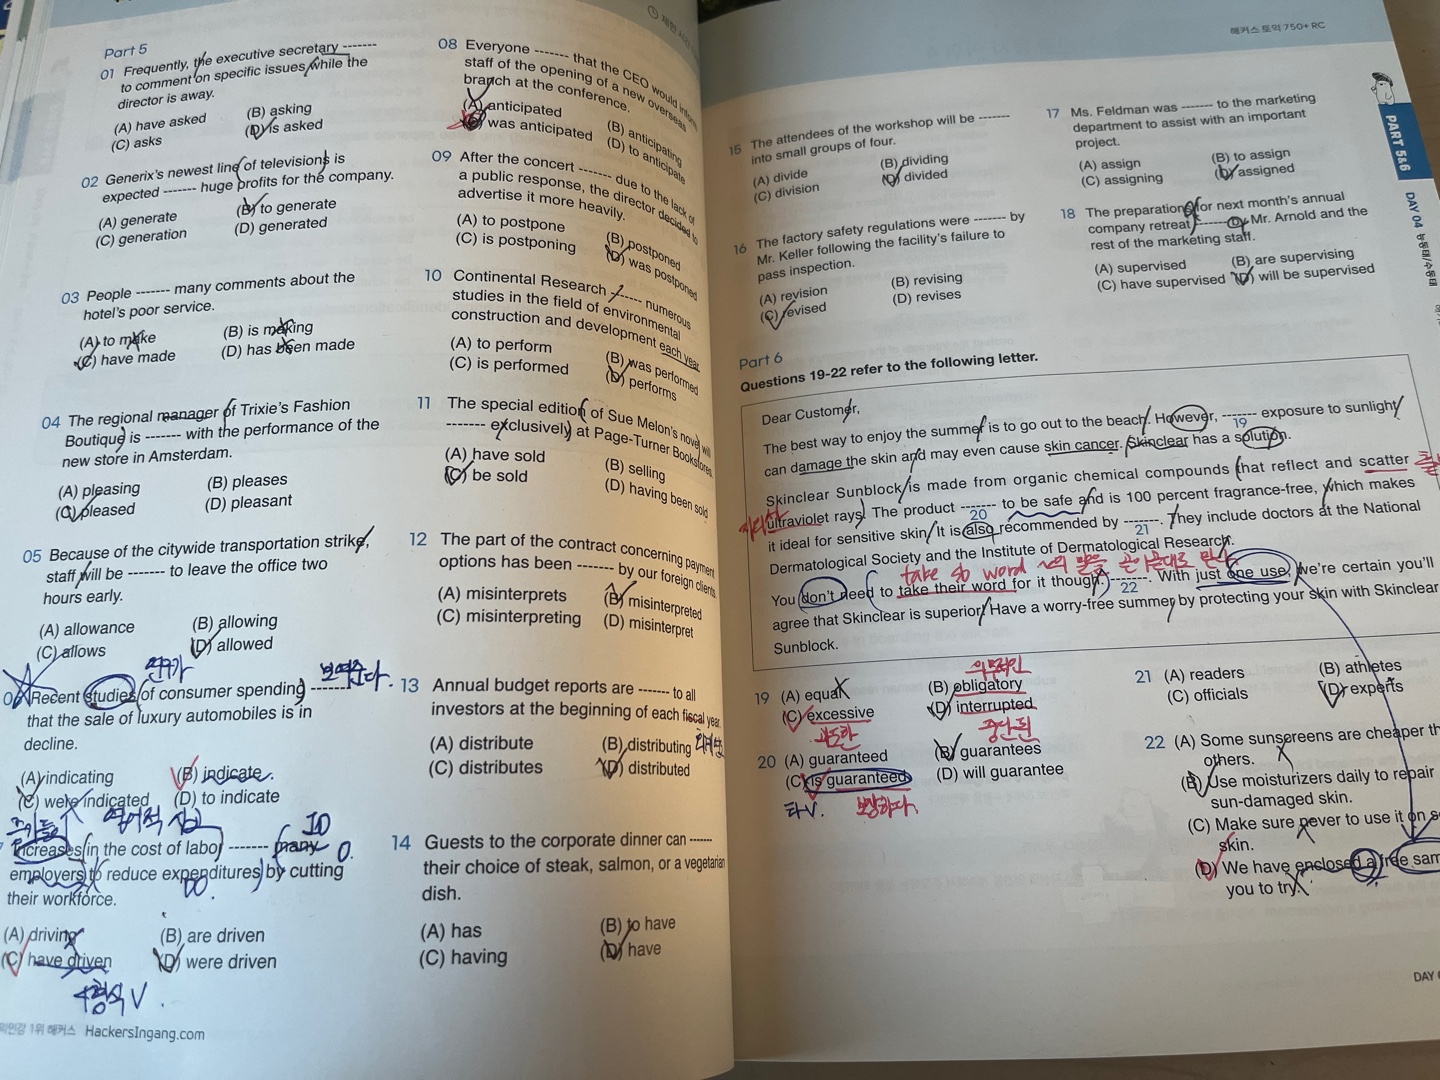 Part 5
01 Frequently, the executive secretary -------
to comment on specific issues while the
director is away.
(A) have asked (B) asking
(C) asks (D) is asked
02 Generix's newest line of televisions is
expected ------- huge profits for the company.
(A) generate (B) to generate
(C) generation (D) generated
03 People ------- many comments about the
hotel's poor service.
(A) to make (B) is making
(C) have made (D) has been made
04 The regional manager of Trixie's Fashion
Boutique is ------- with the performance of the
new store in Amsterdam.
(A) pleasing (B) pleases
(C) pleased (D) pleasant
05 Because of the citywide transportation strike,
staff will be ------- to leave the office two
hours early.
(A) allowance (B) allowing
(C) allows (D) allowed
연구가 보여준다.
Recent studies of consumer spending -------
that the sale of luxury automobiles is in
decline.
(A) indicating (B) indicate
(C) were indicated (D) to indicate
Increases in the cost of labor ------- many
employers to reduce expenditures by cutting
their workforce.
IO
O.
DO.
(A) driving (B) are driven
(C) have driven (D) were driven
V
1위 해커스 HackersIngang.com
08 Everyone ------- that the CEO would inform
staff of the opening of a new overseas
branch at the conference.
(A) anticipated (B) anticipating
(C) was anticipated (D) to anticipate
09 After the concert ------- due to the lack of
a public response, the director decided to
advertise it more heavily.
(A) to postpone (B) postponed
(C) is postponing (D) was postponed
10 Continental Research ------- numerous
studies in the field of environmental
construction and development each year.
(A) to perform (B) was performed
(C) is performed (D) performs
11 The special edition of Sue Melon's novel will
------- exclusively at Page-Turner Bookstores.
(A) have sold (B) selling
(C) be sold (D) having been sold
12 The part of the contract concerning payment
options has been ------- by our foreign clients.
(A) misinterprets (B) misinterpreted
(C) misinterpreting (D) misinterpret
13 Annual budget reports are ------- to all
investors at the beginning of each fiscal year.
(A) distribute (B) distributing
(C) distributes (D) distributed
14 Guests to the corporate dinner can -------
their choice of steak, salmon, or a vegetarian
dish.
(A) has (B) to have
(C) having (D) have
해커스 토익 750+ RC
15 The attendees of the workshop will be -------
into small groups of four.
(A) divide (B) dividing
(C) division (D) divided
16 The factory safety regulations were ------- by
Mr. Keller following the facility's failure to
pass inspection.
(A) revision (B) revising
(C) revised (D) revises
17 Ms. Feldman was ------- to the marketing
department to assist with an important
project.
(A) assign (B) to assign
(C) assigning (D) assigned
18 The preparations for next month's annual
company retreat ------- by Mr. Arnold and the
rest of the marketing staff.
(A) supervised (B) are supervising
(C) have supervised (D) will be supervised
PART 5&6
DAY 04 능동태/수동태
Part 6
Questions 19-22 refer to the following letter.
Dear Customer,
The best way to enjoy the summer is to go out to the beach. However, ------- exposure to sunlight
19
can damage the skin and may even cause skin cancer. Skinclear has a solution.
Skinclear Sunblock is made from organic chemical compounds that reflect and scatter
ultraviolet rays. The product ------- to be safe and is 100 percent fragrance-free, which makes
20
it ideal for sensitive skin. It is also recommended by -------. They include doctors at the National
21
Dermatological Society and the Institute of Dermatological Research.
take sb word ~의 말을 곧이곧대로 믿다
You don't need to take their word for it though. -------. With just one use, we're certain you'll
22
agree that Skinclear is superior. Have a worry-free summer by protecting your skin with Skinclear
Sunblock.
의무적인
19 (A) equal (B) obligatory
(C) excessive (D) interrupted
과도한 중단된
20 (A) guaranteed (B) guarantees
(C) is guaranteed (D) will guarantee
타V. 보장하다.
21 (A) readers (B) athletes
(C) officials (D) experts
22 (A) Some sunscreens are cheaper
others.
(B) Use moisturizers daily to repair
sun-damaged skin.
(C) Make sure never to use it on
skin.
(D) We have enclosed a free
you to try.
DAY